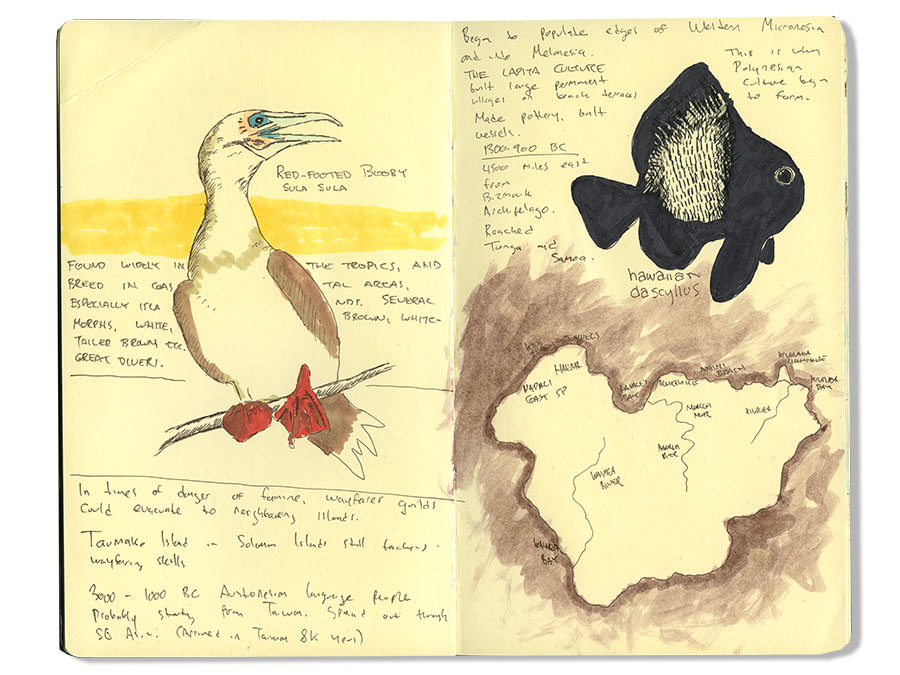 RED-FOOTED BOOBY
SULA SULA
FOUND WIDELY IN THE TROPICS, AND
BREED IN COASTAL AREAS,
ESPECIALLY ISLANDS. SEVERAL
MORPHS, WHITE, BROWN, WHITE-
TAILED BROWN ETC.
GREAT DIVERS.
In times of danger or famine, wayfarer guilds
could evacuate to neighbouring islands.
Taumako Island in Solomon Islands still teaching
wayfaring skills
3000 - 1000 BC Austronesian language people
probably starting from Taiwan. Spread out through
SE Asia. (Arrived in Taiwan 8K years)
Began to populate edges of Western Micronesia
and into Melanesia.
THE LAPITA CULTURE
built large permanent
villages on beach terraces
Made pottery, built
vessels.
1300-900 BC
4500 miles east
from
Bizmark
Archipelago.
Reached
Tonga and
Samoa.
This is why
Polynesian
culture began
to form.
hawaiian
dascyllus
NAPALI
COAST SP
HAENA
ANINI
BEACH
KILAUEA
LIGHTHOUSE
KILAUEA
WAIMEA
RIVER